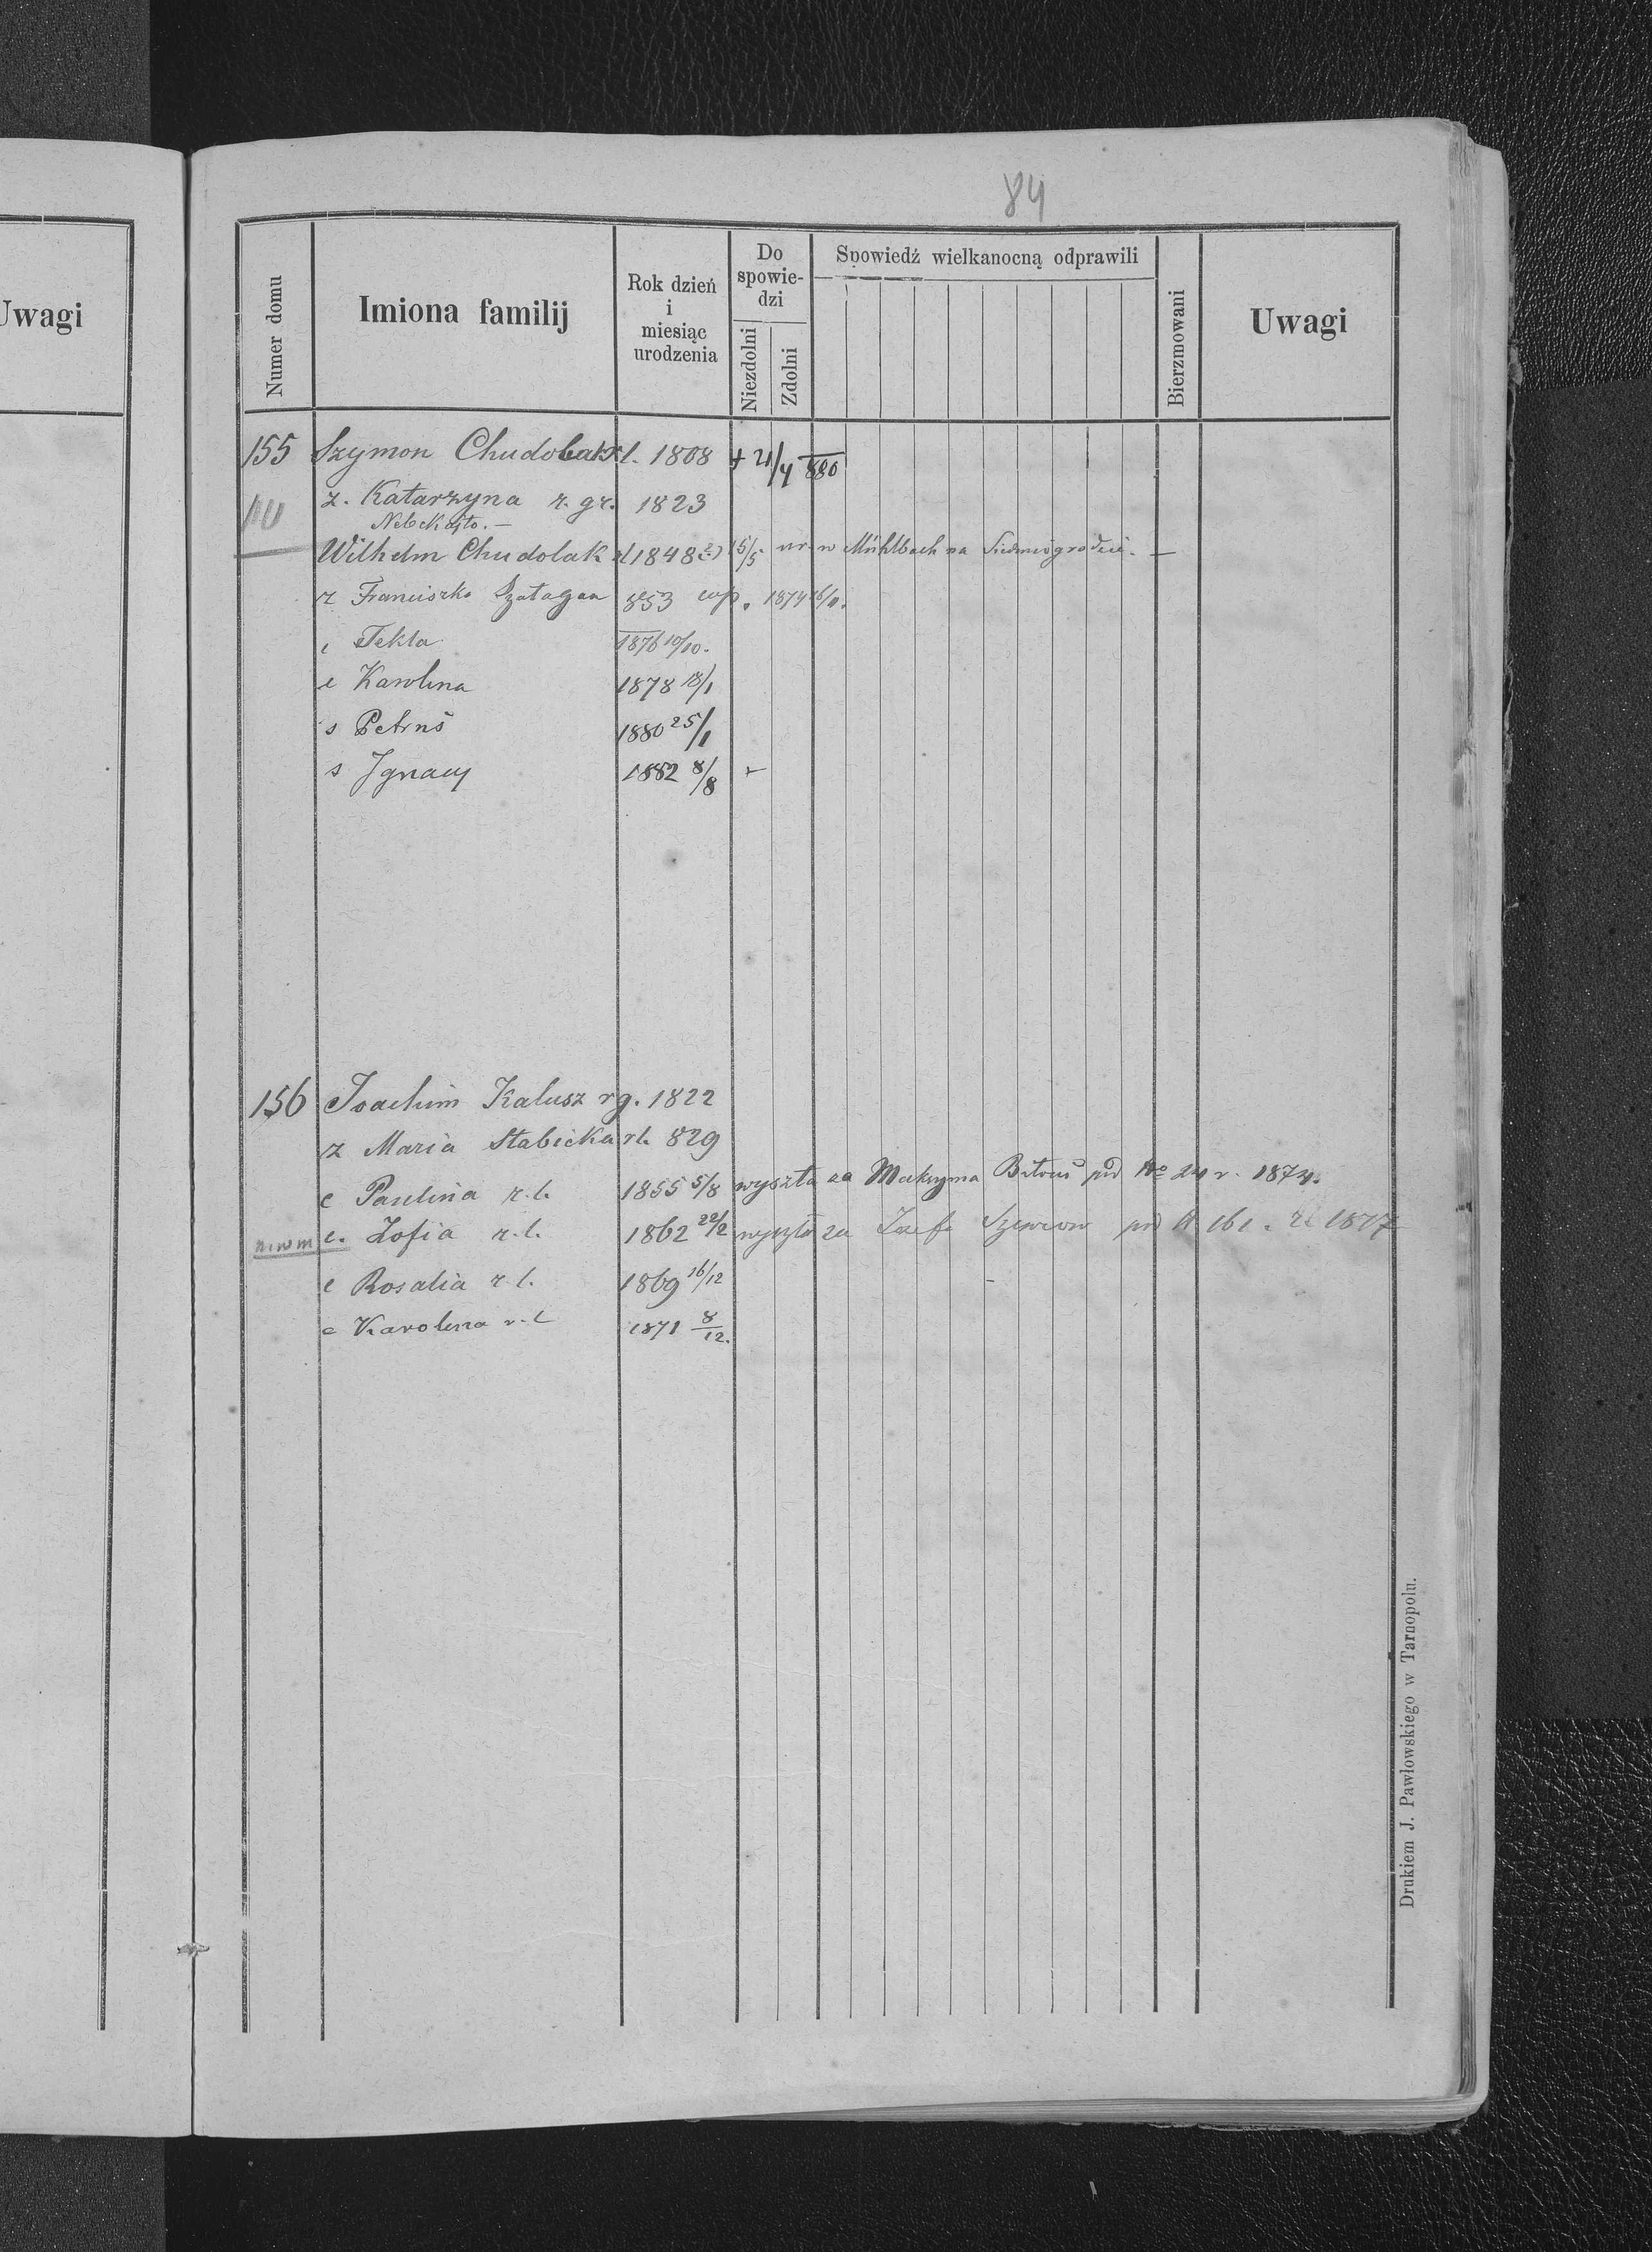 84
Uwagi
Numer domu
Imiona familij
Rok dzień
i
miesiąc
urodzenia
Do
spowie-
dzi
Niezdolni
Zdolni
Spowiedź wielkanocną odprawili
Bierzmowani
Uwagi
155 Szymon Chudobak r.l. 1808 + 21/4 880
ż. Katarzyna r. gr. 1823
Wilhelm Chudolak rl 1848 15/5 ur. w Mühlbach na Siedmiogrodzie. —
ż Franciszka Szatagan 853 cop. 1874
c Tekla 1876 10/10.
c Karolina 1878 18/1
s Petruś 1880 25/1
s Ignacy 1882 8/8
156 Joachim Kalusz rg. 1822
ż Maria Stabicka rl. 829
c Paulina r.l. 1855 5/8 wyszła za Maksyma pod No 24 r. 1874.
c. Zofia r.l. 1862 22/2 wyszła za Józefa pod N 161. 1877
c Rosalia r.l. 1869 16/12
c Karolina r.l 1871 8/12.
Drukiem J. Pawłowskiego w Tarnopolu.